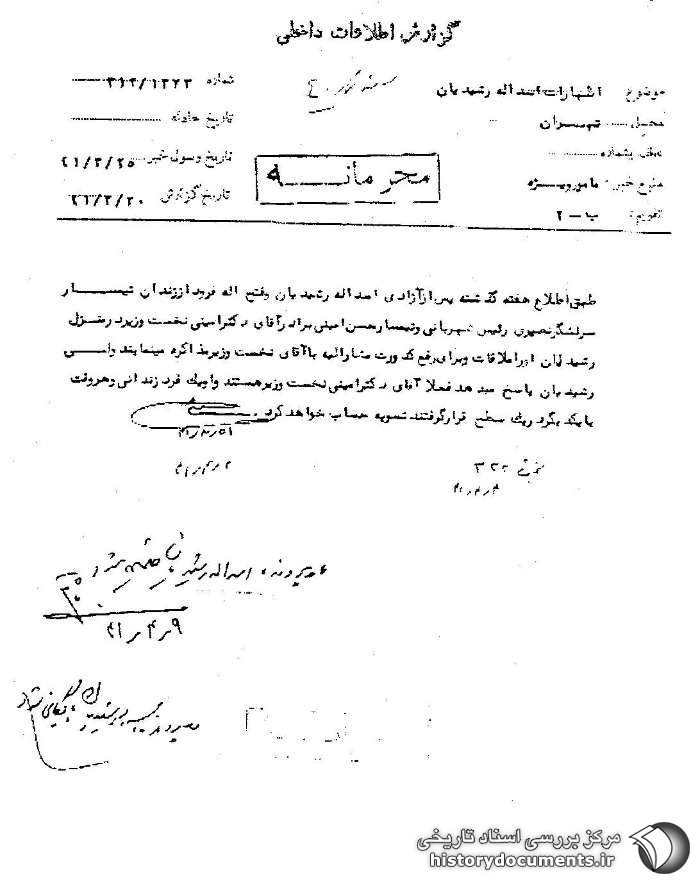 گزارش اطلاعات داخلی
موضوع اظهارات اسداله رشیدیان
شماره ۳۱۲/۱۳۲۳
محل تهران
تاریخ حادثه
عطف بشماره
تاریخ وصول خبر ۴۱/۳/۲۵
منبع خبر: مامور ویژه
تاریخ گزارش ۴۱/۳/۳۰
تقویم: ب - ۲
محرمانه
طبق اطلاع هفته گذشته پس از آزادی اسداله رشیدیان وفتح اله فرود از زندان تیمسار
سرلشگر نصیری رئیس شهربانی وتیمسار حسن امینی برادر آقای دکتر امینی نخست وزیر در منزل
رشیدیان اورا ملاقات وبرای رفع کدورت مشارالیه با آقای نخست وزیر مذاکره مینمایند ولسی
رشیدیان پاسخ میدهد فعلا آقای دکتر امینی نخست وزیر هستند واویک فرد زندانی وهروقت
با یکدیگر در یک سطح قرار گرفتند تسویه حساب خواهد کرد.
۳۲۲
۹ر۴ر۴۱
مرکز بررسی اسناد تاریخی
historydocuments.ir